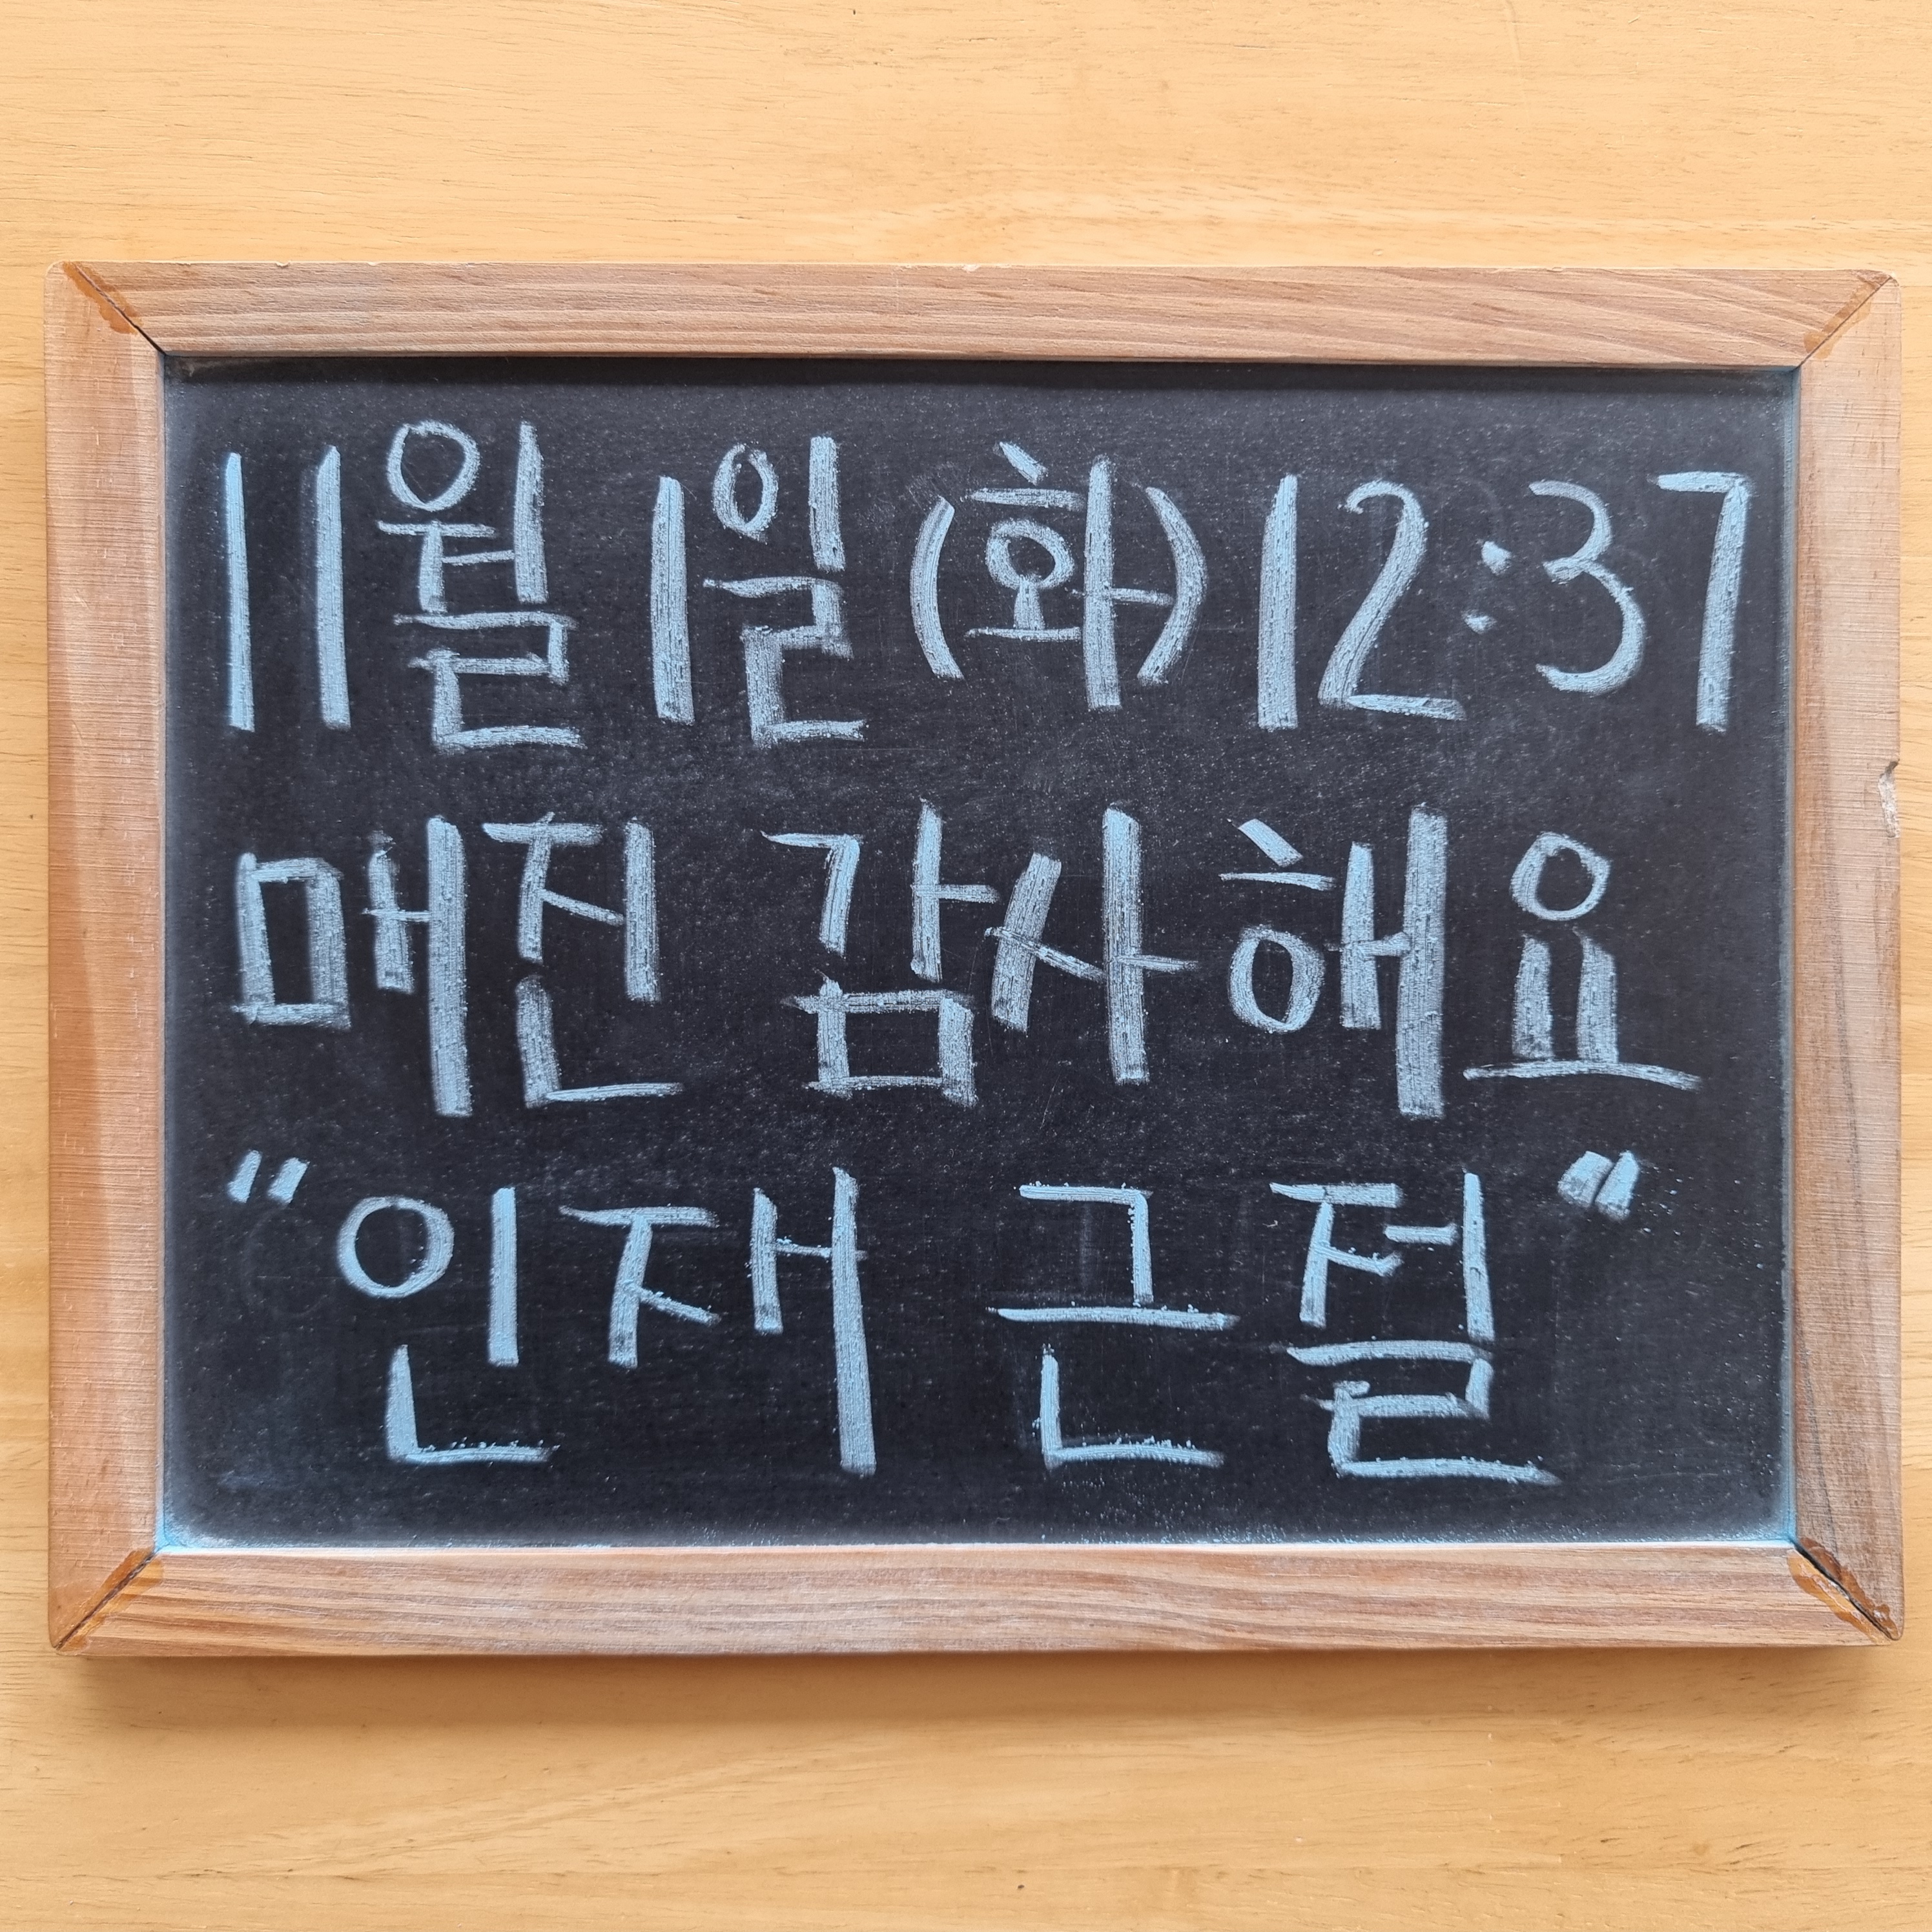 11월 1일(화) 12:37
매진 감사해요
"인재 근절"